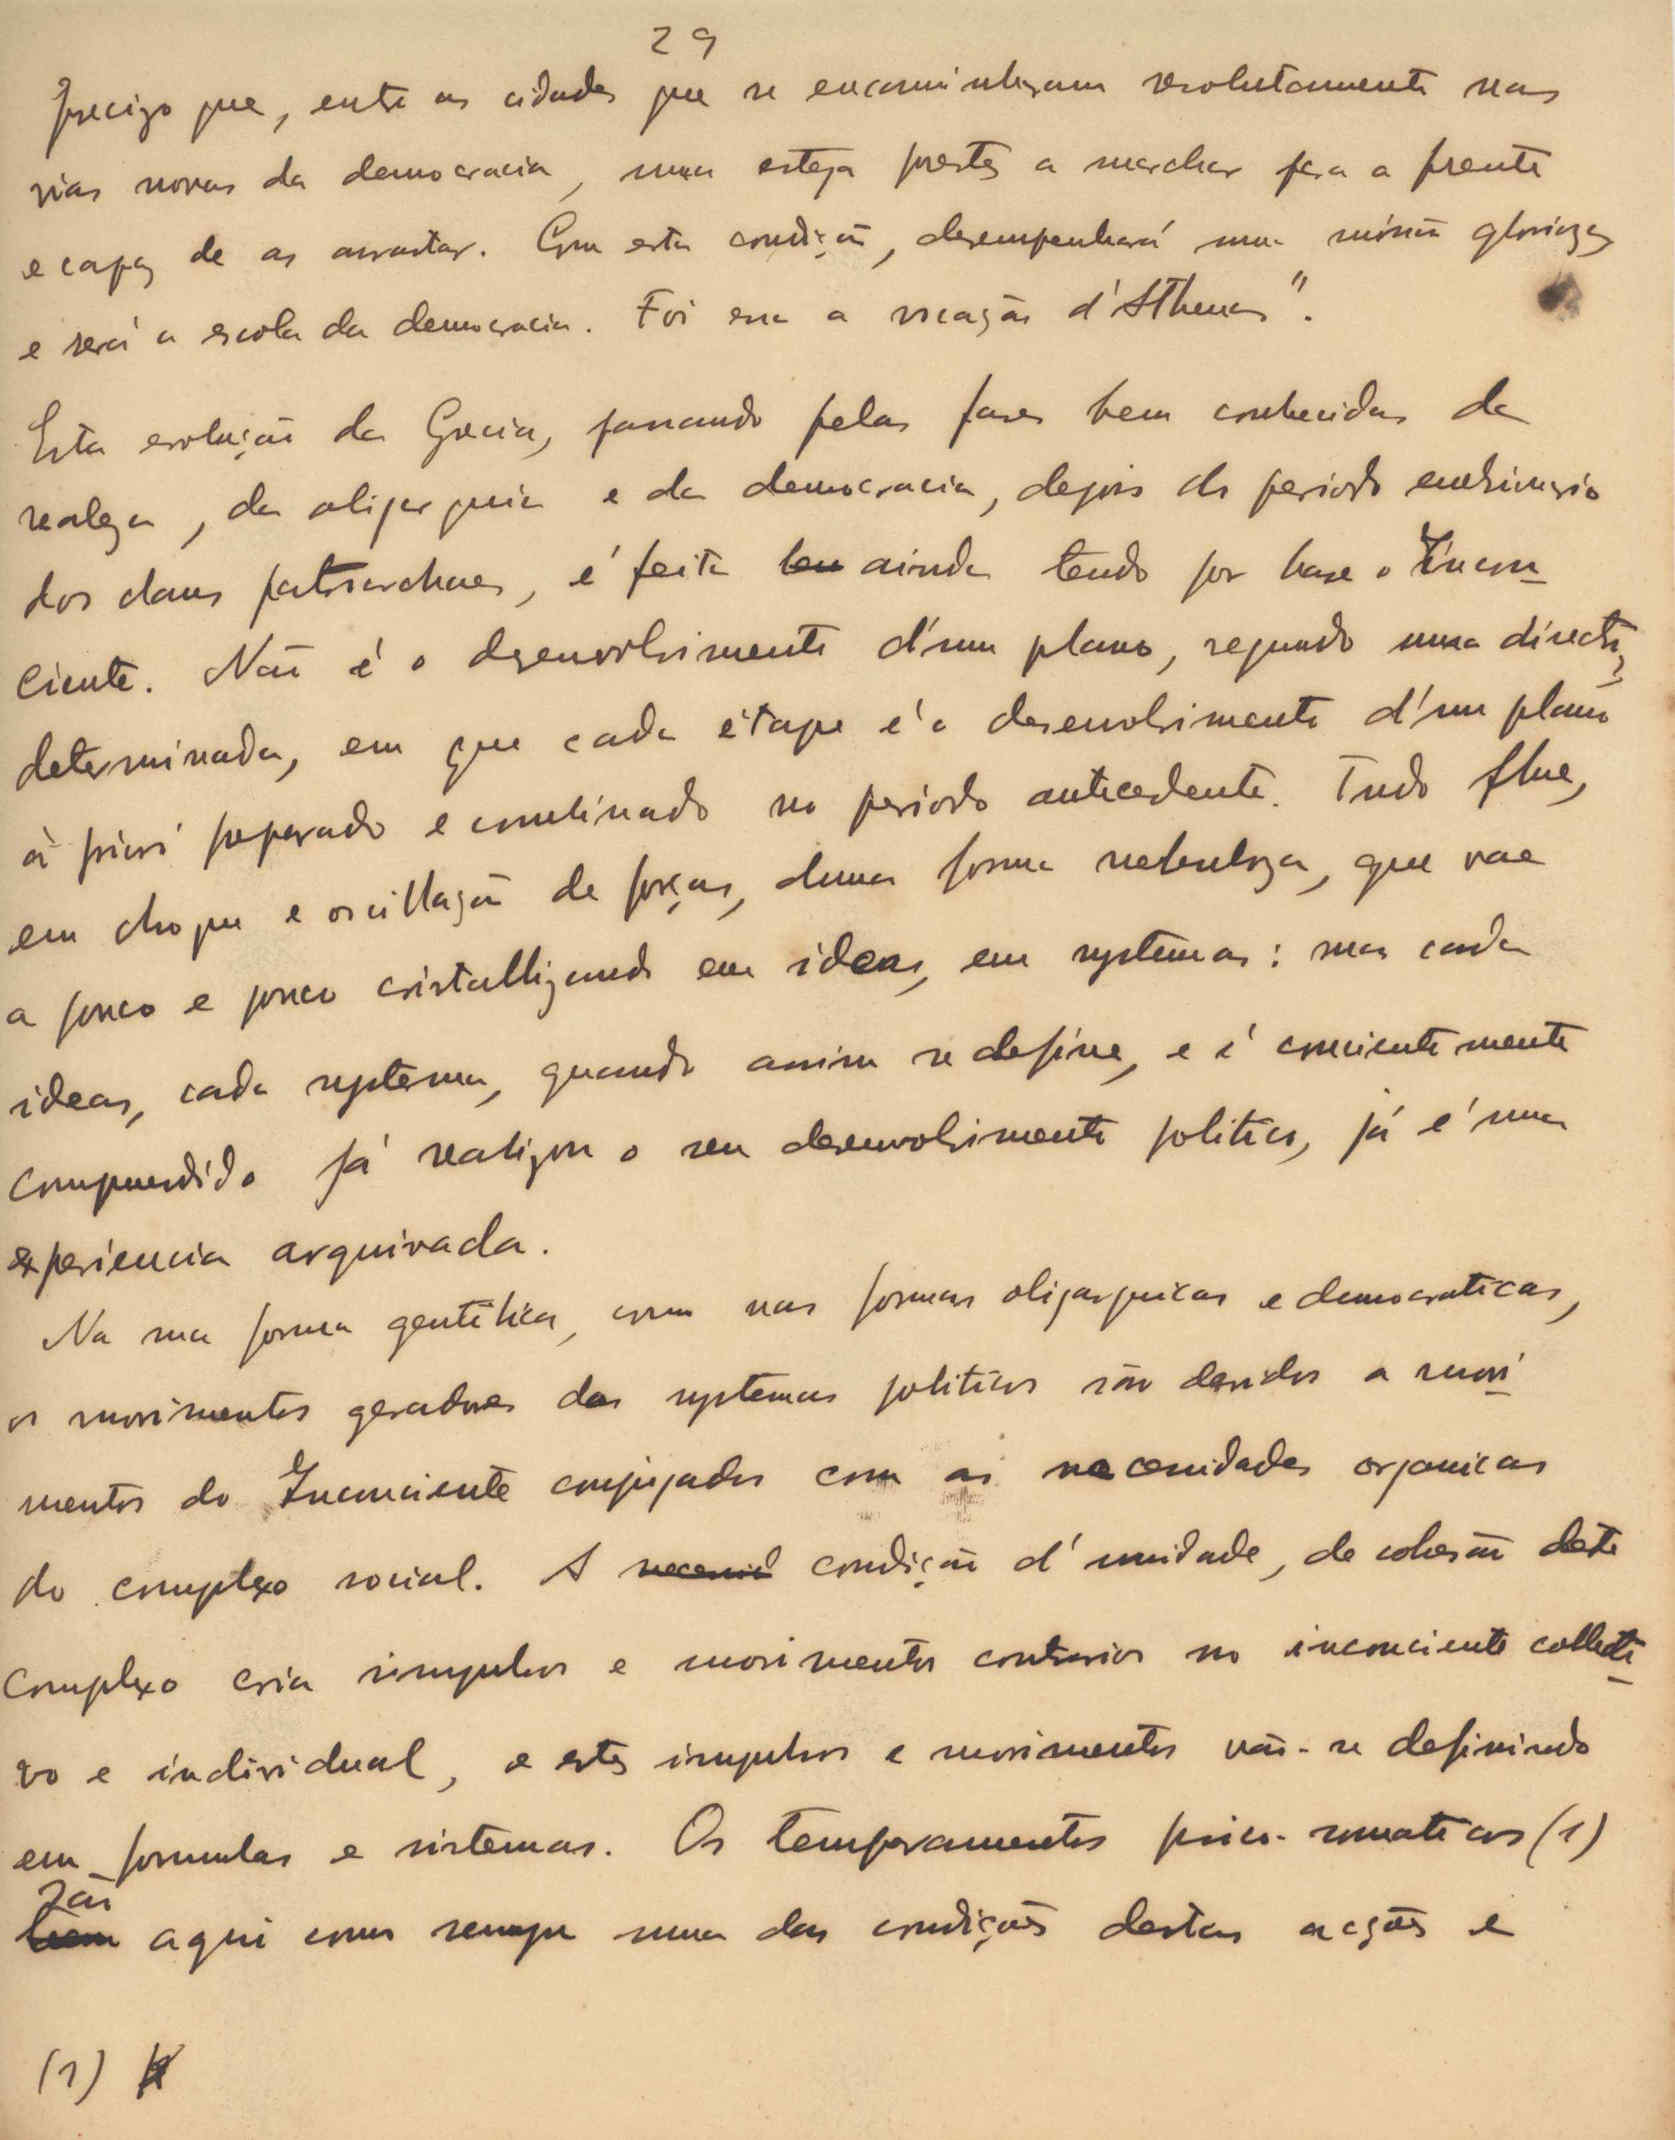 29
precizo que, entre as cidades que se encaminhavam resolutamente nas
vias novas da democracia, uma esteja prestes a marchar para a frente
e capaz de as arrastar. Com esta condição, desempenhará uma missão glorioza,
e será a escola da democracia. Foi essa a vocação d'Athenas".
Esta evolução da Grecia, passando pelas fases bem conhecidas da
realeza, da oligarquia e da democracia, depois do periodo embrionario
dos clans patriarchaes, é feita ainda tendo por base o Incon-
ciente. Não é o desenvolvimento d'um plano, segundo uma directriz
determinada, em que cada étape é o desenvolvimento d'um plano
à priori preparado e combinado no periodo antecedente. Tudo flue,
em choque e oscillação de forças, duma forma nebuloza, que vae
a pouco e pouco cristallizando em ideas, em systemas: mas cada
ideas, cada systema, quando assim se define, e é concientemente
compreendido já realizou o seu desenvolvimento politico, já é uma
experiencia arquivada.
Na sua forma gentilica, como nas formas oligarquicas e democraticas,
os movimentos geradores dos systemas politicos são devidos a movi-
mentos do Inconciente conjugados com as necessidades organicas
do complexo social. A necessid condição d'unidade, de cohesão deste
complexo cria impulsos e movimentos contrarios no inconciente collecti-
vo e individual, e estes impulsos e movimentos vão-se definindo
em formulas e sistemas. Os temperamentos psico-somaticos (1)
são
aqui como sempre uma das condições destas acções e
(1)